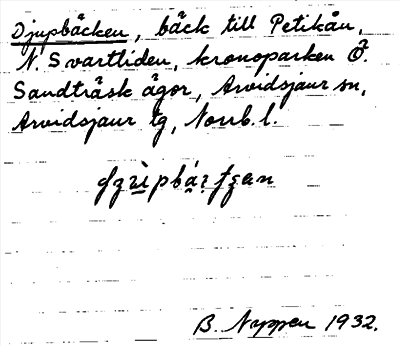 Djupbäcken, bäck till Petikån,
N. Svartliden, kronoparken Ö.
Sandträsk ägor, Arvidsjaur sn,
Arvidsjaur tg, Norrb. l.
B. Nappen 1932.